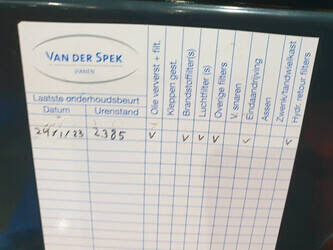 VAN DER SPEK
VIANEN
Laatste onderhoudsbeurt
Datum
Urenstand
Olie ververst + filt.
Kleppen gest.
Brandstoffilter(s)
Luchtfilter(s)
Overige filters
V. snaren
Eindaandrijving
Assen
Zwenk/tandwielkast
Hydr. retour filters
24/1/23 2385 v v v v v v